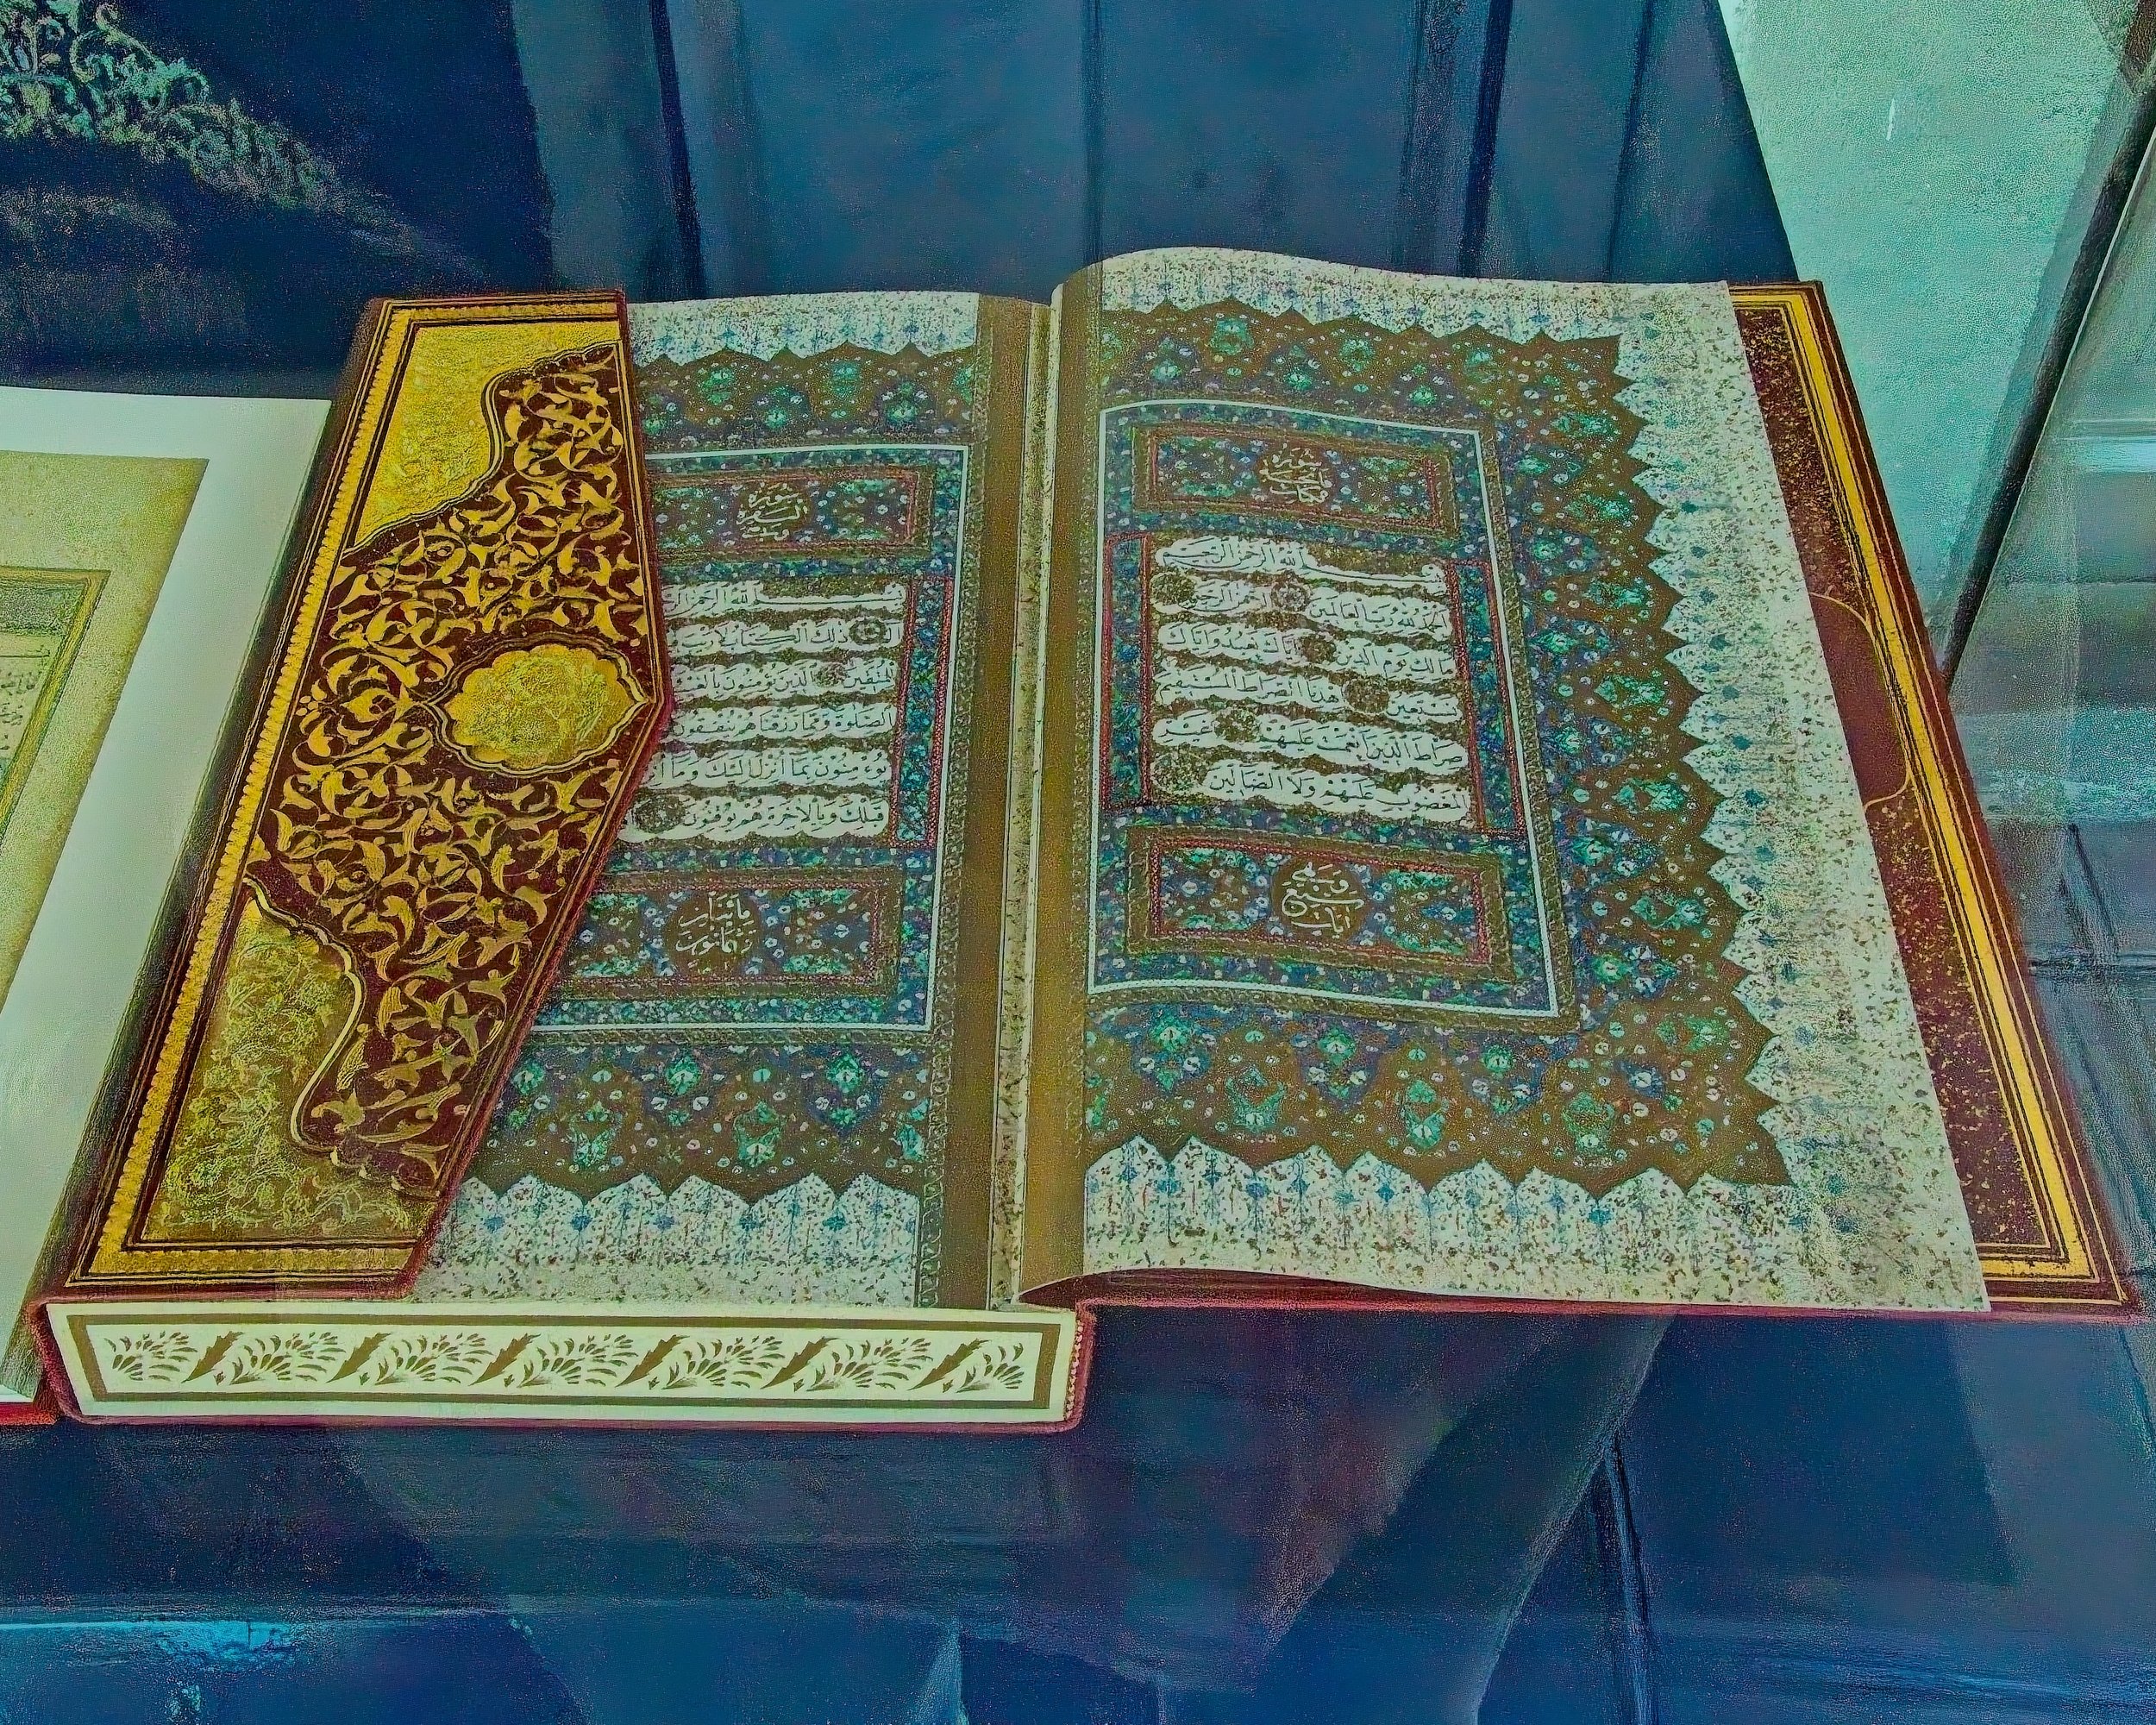 سورة فاتحة الكتاب
بسم الله الرحمن الرحيم
الحمد لله رب العالمين الرحمن الرحيم
مالك يوم الدين اياك نعبد واياك
نستعين اهدنا الصراط المستقيم
صراط الذين انعمت عليهم غير
المغضوب عليهم ولا الضالين
وهي سبع آيات
سورة البقرة
بسم الله الرحمن
الم ذلك الكتاب لا ريب
للمتقين الذين يؤمنون بالغيب
الصلوة ومما رزقناهم ينفقون
يؤمنون بما انزل اليك وما
قبلك وبالاخرة هم يوقنون
مائتان
وثمانون